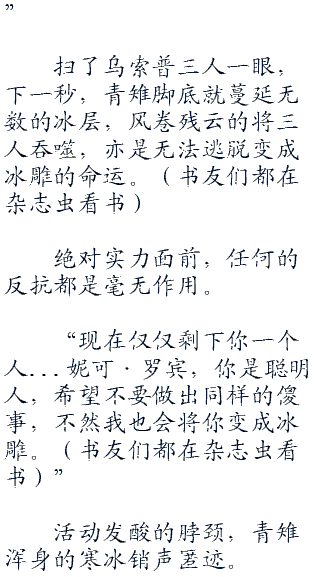 ”
扫了乌索普三人一眼，
下一秒，青雉脚底就蔓延无
数的冰层，风卷残云的将三
人吞噬，亦是无法逃脱变成
冰雕的命运。（书友们都在
杂志虫看书）
绝对实力面前，任何的
反抗都是毫无作用。
“现在仅仅剩下你一个
人...妮可·罗宾，你是聪明
人，希望不要做出同样的傻
事，不然我也会将你变成冰
雕。（书友们都在杂志虫看
书）”
活动发酸的脖颈，青雉
浑身的寒冰销声匿迹。